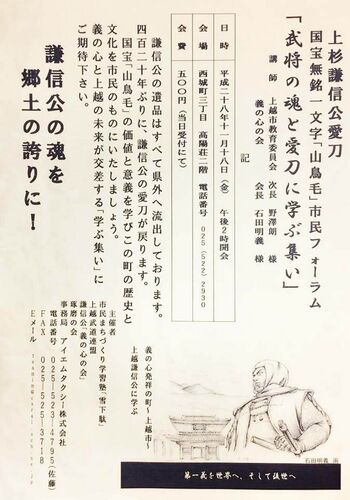 上杉謙信公愛刀
国宝無銘一文字「山鳥毛」市民フォーラム
「武将の魂と愛刀に学ぶ集い」
講師 上越市教育委員会 次長 野澤朗 様
義の心の会 会長 石田明義 様
記
日時 平成二十八年十一月十八日(金) 午後2時開会
会場 西城町三丁目 高陽荘二階 電話番号 025(522)2930
会費 五〇〇円(当日受付にて)
謙信公の遺品はすべて県外へ流出しております。
四百二十年ぶりに、謙信公の愛刀が戻ります。
国宝「山鳥毛」の価値と意義を学びこの町の歴史と
文化を市民のものにいたしましょう。
義の心と上越の未来が交差する「学ぶ集い」に
ご期待下さい。
謙信公の魂を
郷土の誇りに!
義の心発祥の町~上越市~
上越謙信公に学ぶ
主催者
市民まちづくり学習塾「雪下駄」
上越武道連盟
謙信公「義の心の会」
琢磨の会
事務局 アイエムタクシー株式会社
電話番号 025-523-4795(佐藤)
FAX 025-525-3718
Eメール
石田明義 画
第一義を世界へ、そして後世へ